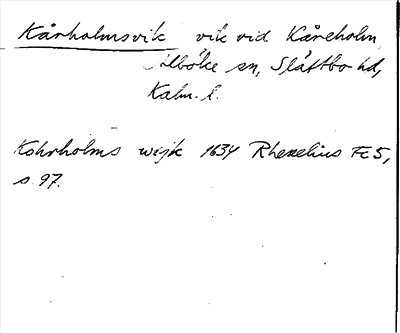 Kårholmsvik vik vid Kåreholm
Alböke sn, Slättbo hd,
Kalm. l.
Kohrholms wijk 1634 Rhezelius Fc5,
s 97.